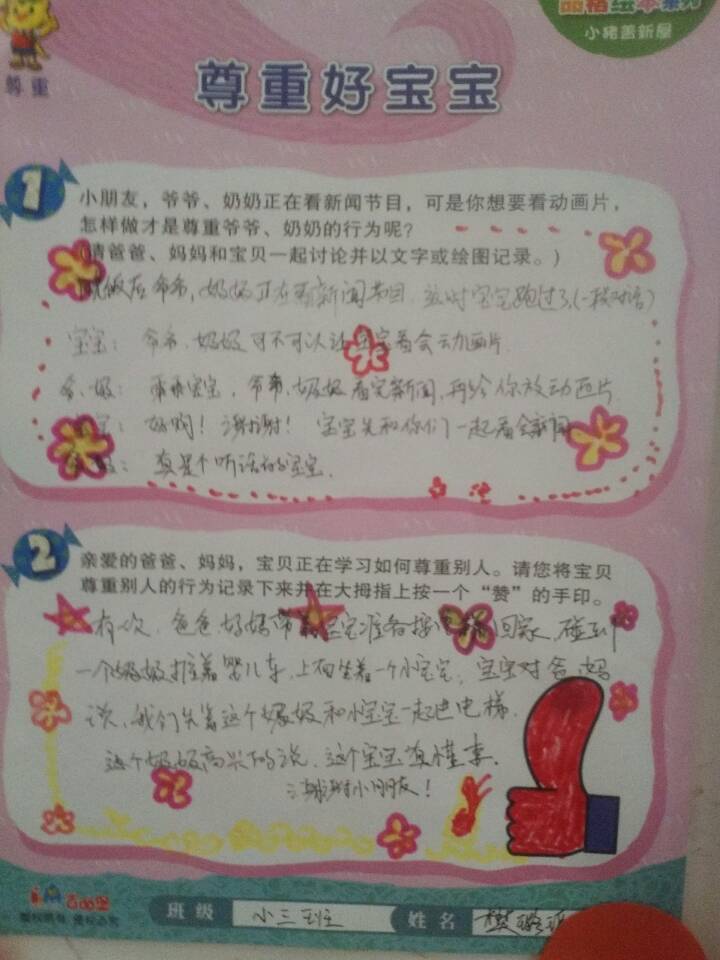 品格绘本系列
小猪盖新屋
尊重
尊重好宝宝
1
小朋友，爷爷、奶奶正在看新闻节目，可是你想要看动画片，
怎样做才是尊重爷爷、奶奶的行为呢？
(请爸爸、妈妈和宝贝一起讨论并以文字或绘图记录。)
晚饭后爷爷，奶奶正在看新闻节目，这时宝宝跑过了(一段对话)
宝宝：爷爷、奶奶可不可以让宝宝看会动画片
爷、奶：乖乖宝宝，爷爷、奶奶看完新闻，再给你放动画片
宝：好哟！谢谢！宝宝先和你们一起看会新闻
奶：真是个听话的宝宝.
2
亲爱的爸爸、妈妈，宝贝正在学习如何尊重别人。请您将宝贝
尊重别人的行为记录下来并在大拇指上按一个“赞”的手印。
有一次，爸爸、妈妈带着宝宝准备 回家，碰到
一个奶奶推着婴儿车，上面坐着一个小宝宝，宝宝对爸、妈
说，我们先等这个奶奶和小宝宝一起进电梯.
这个奶奶高兴的说，这个宝宝真懂事.
谢谢小朋友！
版权所有 侵权必究
班级 小三班 姓名 樊